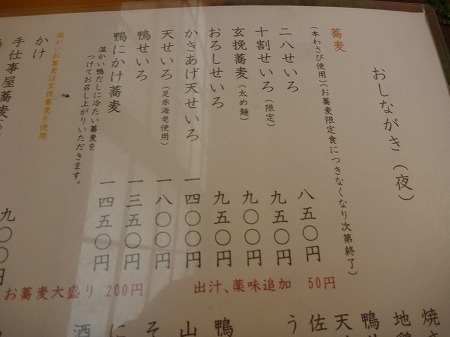 おしながき（夜）
蕎麦
（本わさび使用）（お蕎麦限定食につきなくなり次第終了）
二八せいろ 八五〇円
十割せいろ（限定） 九五〇円
玄挽蕎麦（太め麺） 九五〇円
おろしせいろ 九五〇円
かきあげ天せいろ 一四〇〇円
天せいろ（足赤海老使用） 一八〇〇円
鴨せいろ 一三五〇円
鴨にかけ蕎麦 一四五〇円
温かい鴨だしに冷たい蕎麦を
つけてお召し上がりいただきます。
温かいお蕎麦は玄挽蕎麦を使用
かけ
手仕事屋蕎麦
九〇〇円
出汁、薬味追加 50円
お蕎麦大盛り 200円
焼
地鶏
鴨
天
佐
う
鴨
山
そ
に
酒